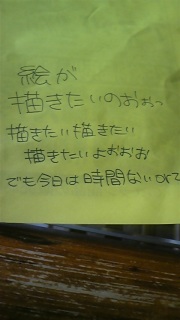 絵が
描きたいのおぉっ
描きたい描きたい
描きたいよおおお
でも今日は時間ないorz